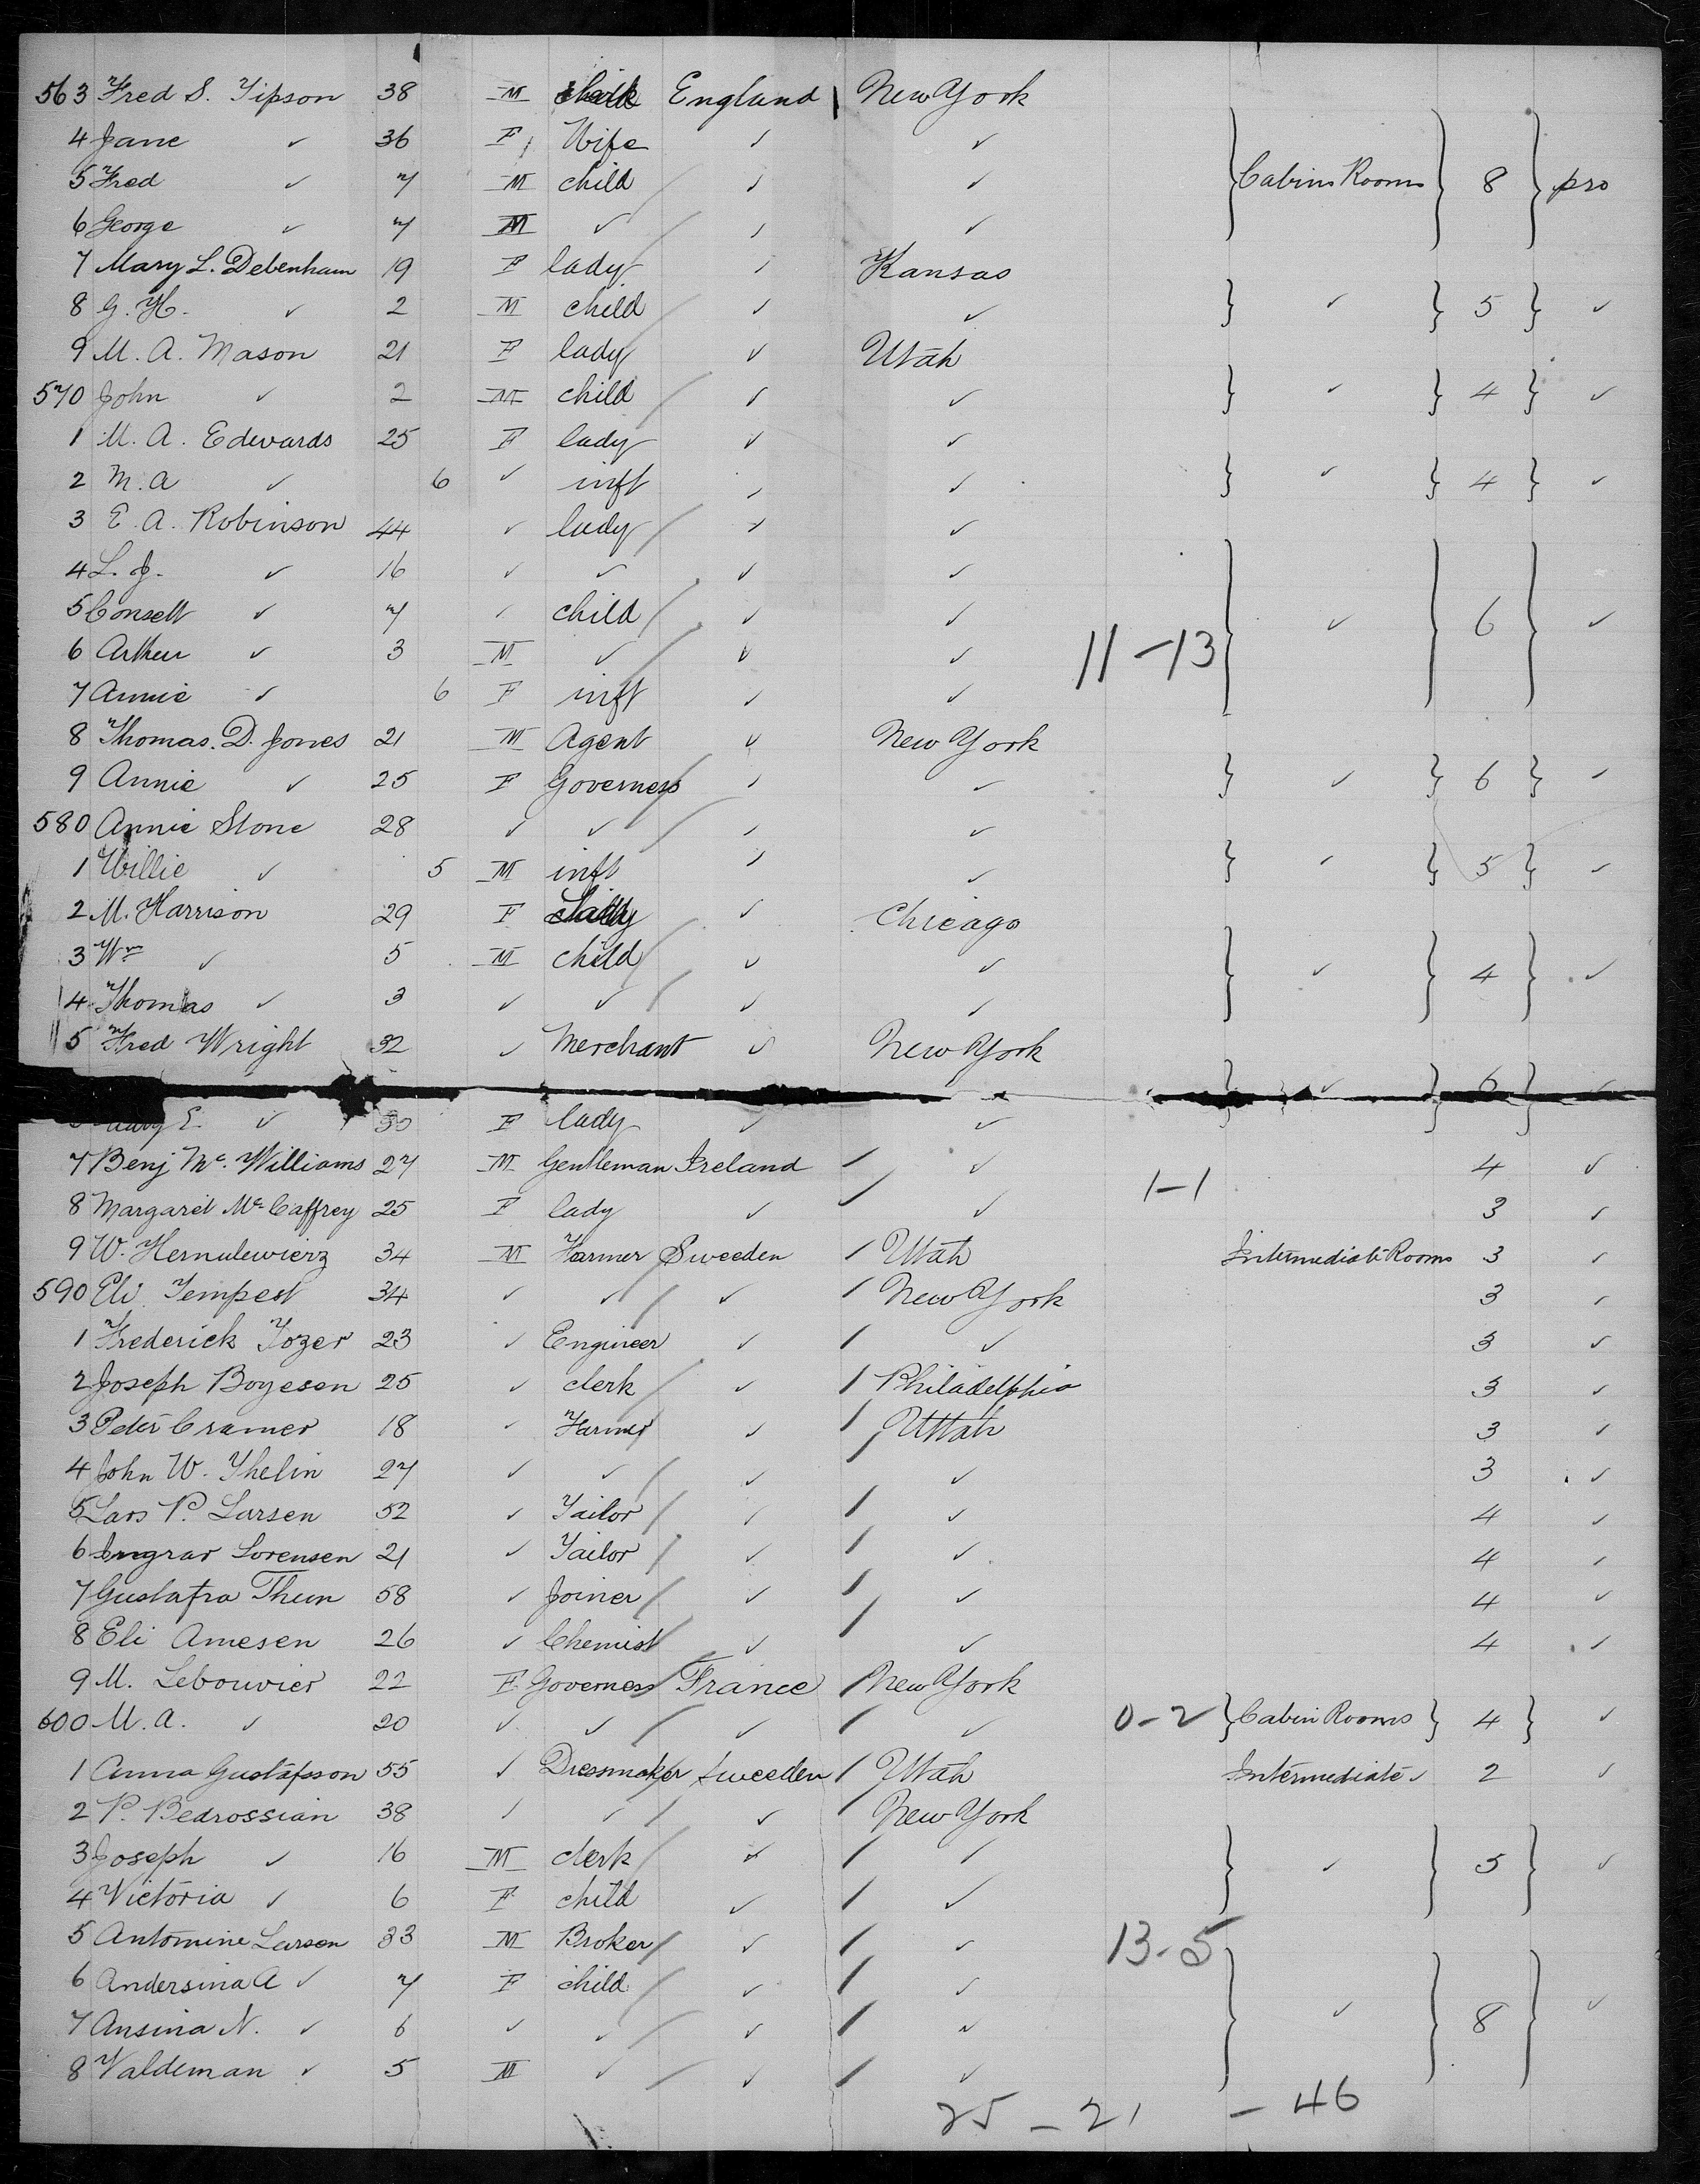 563 Fred S. Tipson 38 M clerk England New York
4 Jane ✓ 36 F Wife ✓ ✓
5 Fred ✓ 7 M child ✓ ✓ } Cabin Rooms } 8 } pro
6 George ✓ 7 M ✓ ✓ ✓
7 Mary L. Debenham 19 F lady ✓ Kansas
8 G. H. ✓ 2 M child ✓ ✓ } ✓ } 5 } ✓
9 M. A. Mason 21 F lady ✓ Utah
570 John ✓ 2 M child ✓ ✓ } ✓ } 4 } ✓
1 M. A. Edwards 25 F lady ✓ ✓
2 M. A ✓ 6 ✓ inft ✓ ✓ } ✓ } 4 } ✓
3 E. A. Robinson 44 ✓ lady ✓ ✓
4 L. J. ✓ 16 ✓ ✓ ✓ ✓
5 Consett ✓ 7 ✓ child ✓ ✓ } ✓ } 6 } ✓
6 Arthur ✓ 3 M ✓ ✓ ✓ 11-13
7 Annie ✓ 6 F inft ✓ ✓
8 Thomas. D. Jones 21 M Agent ✓ New York
9 Annie ✓ 25 F Governess ✓ ✓ } ✓ } 6 } ✓
580 Annie Stone 28 ✓ ✓ ✓ ✓
1 Willie ✓ 5 M inft ✓ ✓ } ✓ } 5 } ✓
2 M. Harrison 29 F Lady ✓ Chicago
3 Wm ✓ 5 M child ✓ ✓ } ✓ } 4 } ✓
4 Thomas ✓ 3 ✓ ✓ ✓ ✓
5 Fred Wright 32 ✓ Merchant ✓ New York
} ✓ } 6 } ✓
E. ✓ 30 F lady ✓ ✓
7 Benj Mc. Williams 27 M Gentleman Ireland ✓ 4 ✓
8 Margaret Mc Caffrey 25 F lady ✓ ✓ 1-1 3 ✓
9 W. Hernulewierz 34 M Farmer Sweeden Utah Intermediate Rooms 3 ✓
590 Eli Tempest 34 ✓ ✓ ✓ New York 3 ✓
1 Frederick Tozer 23 ✓ Engineer ✓ ✓ 3 ✓
2 Joseph Boyesen 25 ✓ clerk ✓ Philadelphia 3 ✓
3 Peter Cramer 18 ✓ Farmer ✓ Utah 3 ✓
4 John W. Thelin 27 ✓ ✓ ✓ ✓ 3 ✓
5 Lars P. Larsen 52 ✓ Tailor ✓ ✓ 4 ✓
6 Ingrar Sorensen 21 ✓ Tailor ✓ ✓ 4 ✓
7 Gustafra Thun 58 ✓ Joiner ✓ ✓ 4 ✓
8 Eli Amesen 26 ✓ Chemist ✓ ✓ 4 ✓
9 M. Lebouvier 22 F Governess France New York
600 M. A. ✓ 20 ✓ ✓ ✓ ✓ 0-2 } Cabin Rooms } 4 } ✓
1 Anna Gustafsson 55 ✓ Dressmaker Sweeden Utah Intermediate ✓ 2 ✓
2 P. Bedrossian 38 ✓ ✓ ✓ New York
3 Joseph ✓ 16 M clerk ✓ ✓ } ✓ } 5 } ✓
4 Victoria ✓ 6 F child ✓ ✓
5 Antomine Larsen 33 M Broker ✓ ✓ 13-5
6 Andersina A ✓ 7 F child ✓ ✓
7 Ansina N. ✓ 6 ✓ ✓ ✓ ✓ } ✓ } 8 } ✓
8 Valdeman ✓ 5 M ✓ ✓ ✓
25 - 21 - 46